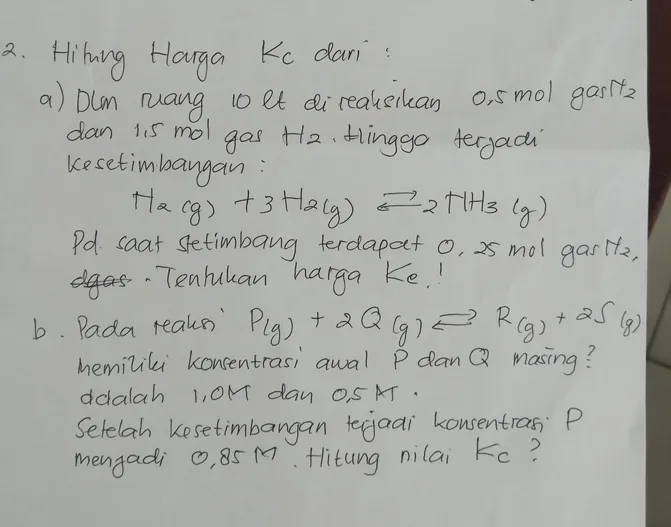 2. Hitung Harga Kc dari :
a) Dlm ruang 10 lt direaksikan 0,5 mol gas N2
dan 1,5 mol gas H2. Hingga terjadi
kesetimbangan :
N2 (g) + 3 H2 (g) ⇌ 2 NH3 (g)
Pd saat setimbang terdapat 0,25 mol gas N2,
dgas. Tentukan harga Kc.!
b. Pada reaksi P(g) + 2 Q (g) ⇌ R(g) + 2S (g)
memiliki konsentrasi awal P dan Q masing²
adalah 1,0M dan 0,5 M.
Setelah kesetimbangan terjadi konsentrasi P
menjadi 0,85 M. Hitung nilai Kc ?